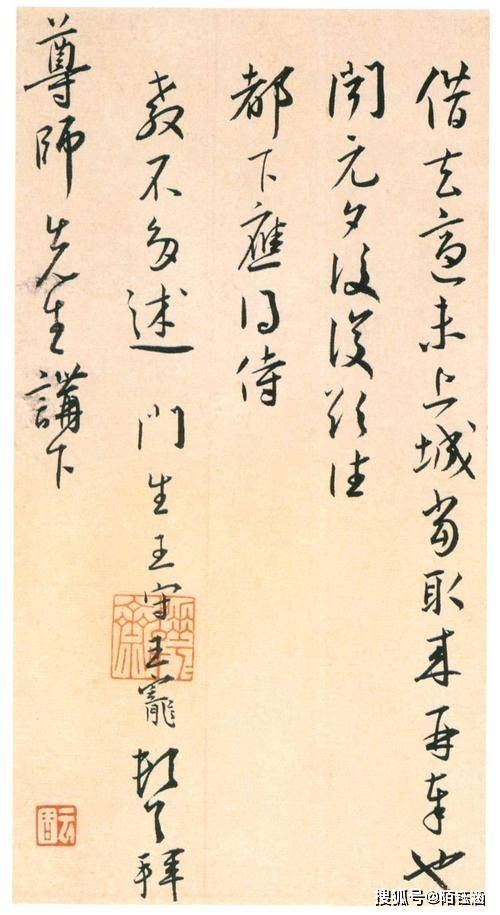 借去適未上城當取來再奉也
聞元夕後復欲往
都下應得侍
教不多述 門生王守王寵頓首拜
尊師先生講下
搜狐号@陌钰涵